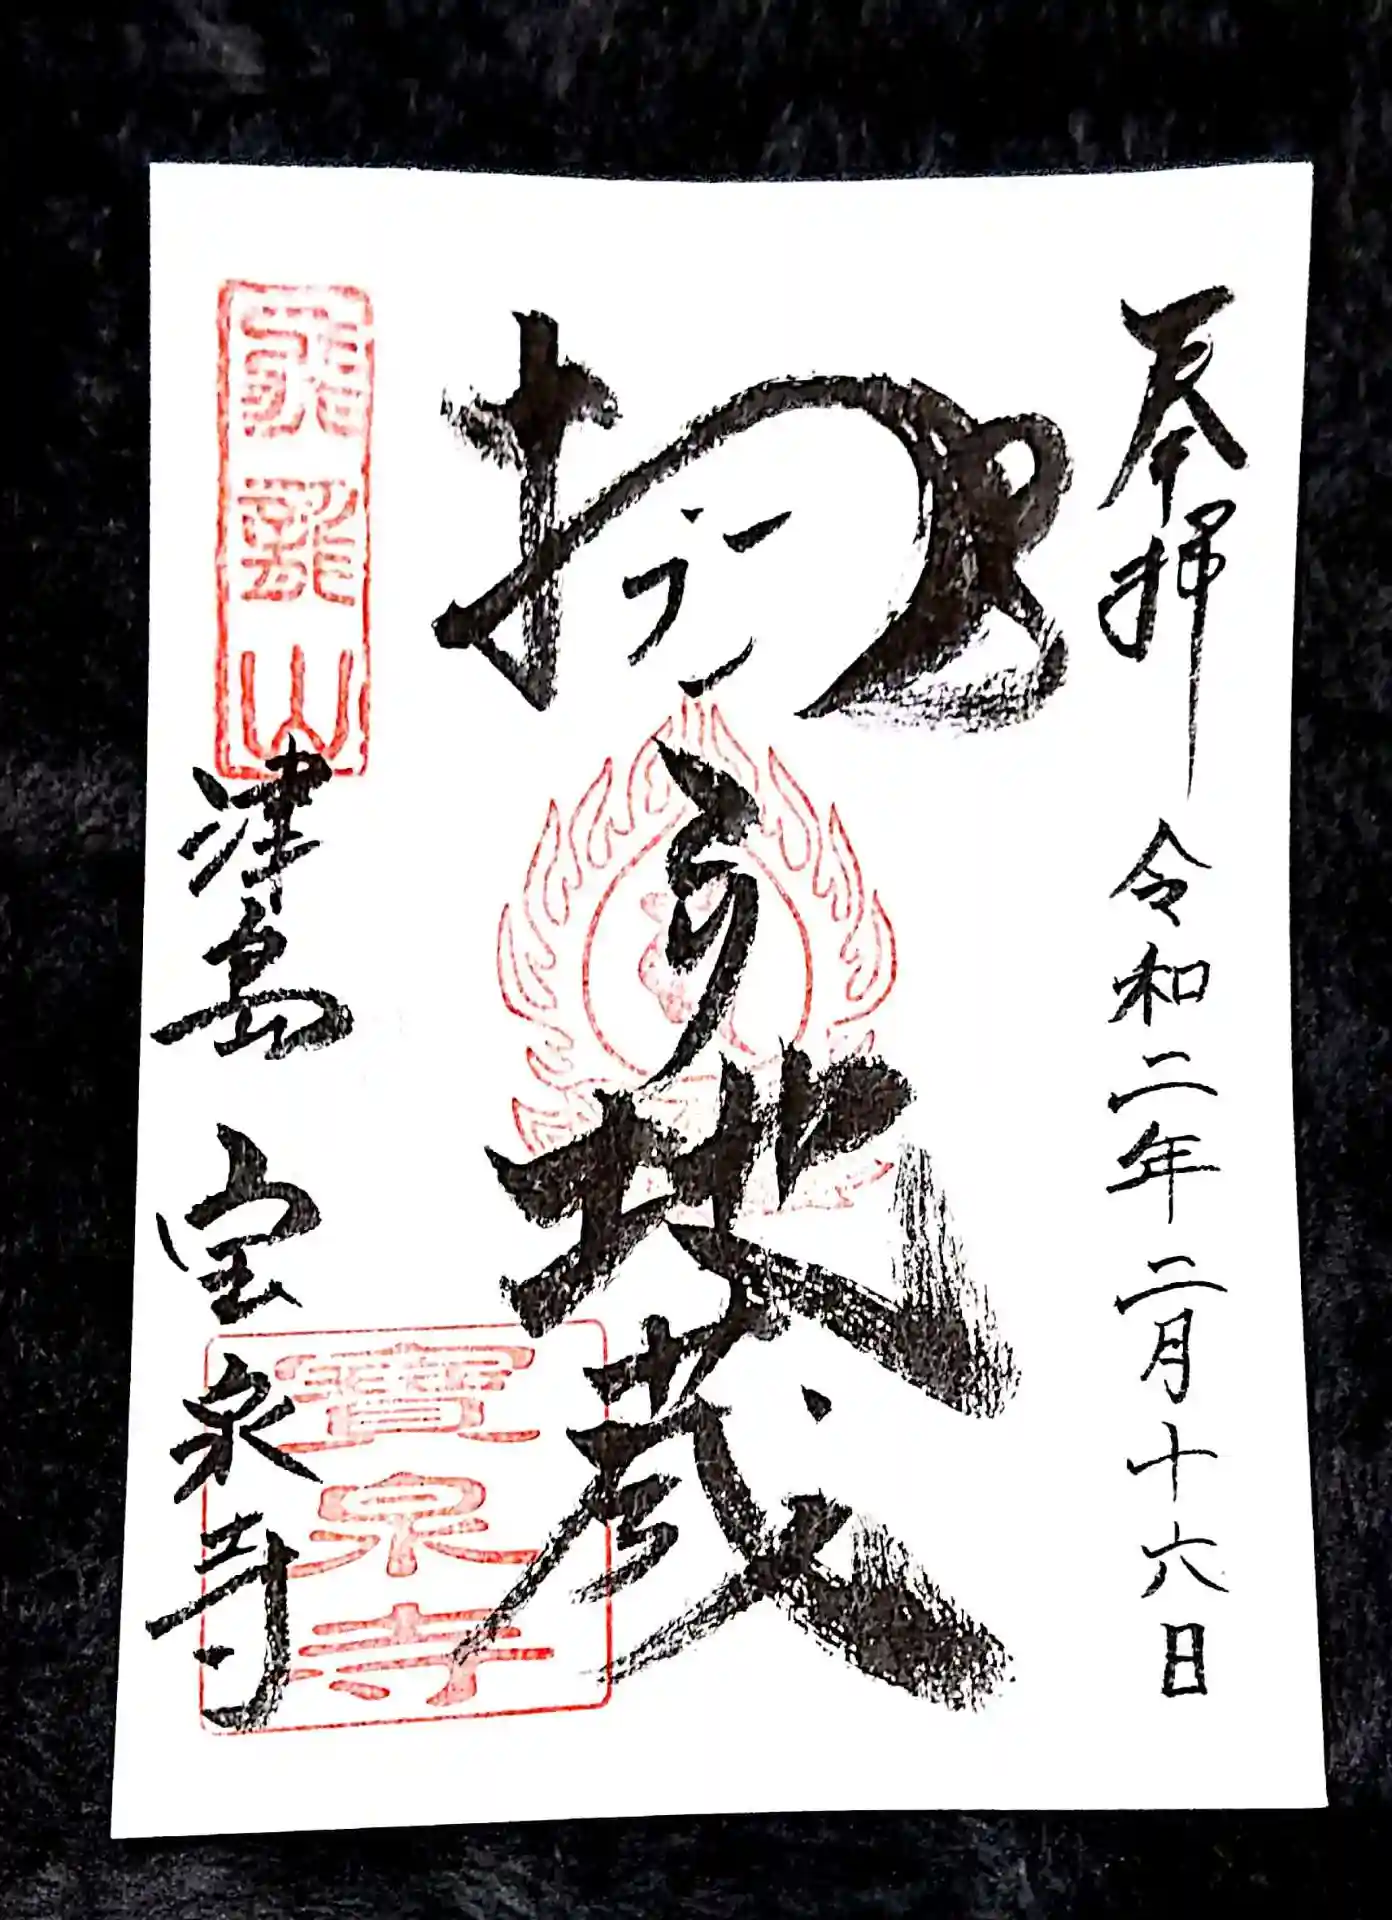 奉拝 令和二年二月十六日
地蔵
津島 宝泉寺
寶泉寺